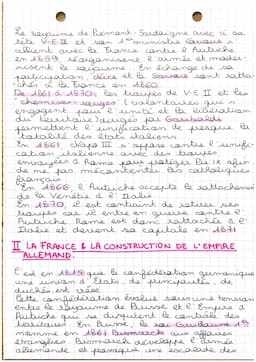 Le royaume de Piémont-Sardaigne avec à sa
tête V-E II et son 1er ministre Cavour s'
allient avec la France contre l'Autriche
en 1859, réorganisent l'armée et moder-
nisent le royaume. En échange de sa
participation, Nice et la Savoie sont ratta-
chés à la France en 1860.
De 1861 à 1870, les troupes de V-E II et les
"chemises-rouges" (volontaires qui s'
engagent pour l'unité et la libération
du territoire) dirigés par Garibaldi
permettent l'unification de presque la
totalité des états italiens.
En 1861, Napo III s'oppose contre l'unifi-
cation italienne avec des troupes
envoyées à Rome pour protéger Pie IX afin
de ne pas mécontenter les catholiques
français.
En 1866, l'Autriche accepte le rattachement
de la Vénétie à l'Italie.
En 1870, il est contraint de retirer ses
troupes car il entre en guerre contre l'
Autriche. Rome est donc rattachée à l'
Italie et devient sa capitale en 1871
II LA FRANCE & LA CONSTRUCTION DE L'EMPIRE
ALLEMAND.
C'est en 1815 que la confédération germanique
une union d'États, de principautés, de
duchés est créée.
Cette confédération évolue sous une tension
entre le Royaume de Prusse et l'Empire d'
Autriche qui se disputent le contrôle des
territoires. En Prusse, le roi Guillaume 1er
nomme en 1861 Bismarck aux affaires
étrangères. Bismarck développe l'armée
allemande et provoque une escalade des